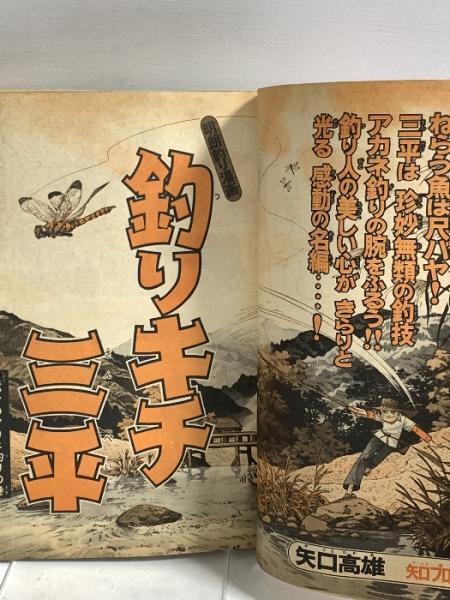 ねらう魚は尺バヤ！
三平は 珍妙無類の釣技
アカネ釣りの腕をふるう!!
釣り人の美しい心が きらりと
光る 感動の名編‥‥！
釣りキチ
三平
さんぺい
矢口高雄
矢口プロ